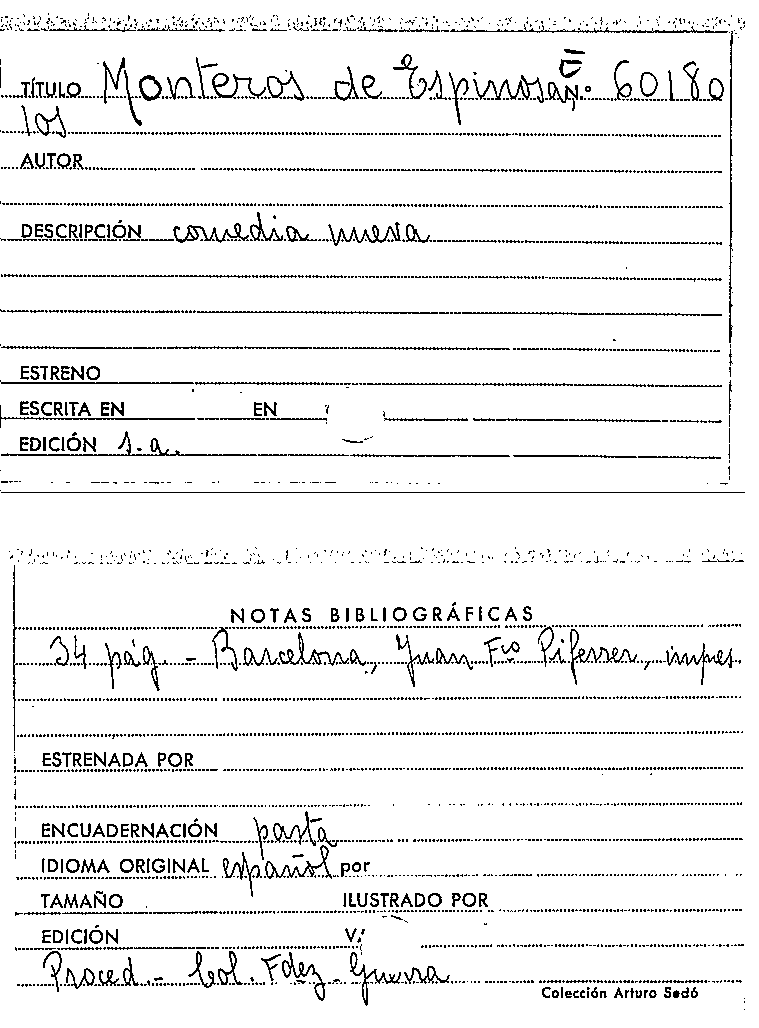 TÍTULO Monteros de Espinosa N.º 60180
los
AUTOR
DESCRIPCIÓN comedia nueva
ESTRENO
ESCRITA EN EN
EDICIÓN s.a.
NOTAS BIBLIOGRÁFICAS
34 pág. - Barcelona, Juan Fco Piferrer, impres.
ESTRENADA POR
ENCUADERNACIÓN pasta
IDIOMA ORIGINAL español por
TAMAÑO ILUSTRADO POR
EDICIÓN V.
Proced. - Col. Fdez - Guerra
Colección Arturo Sedó